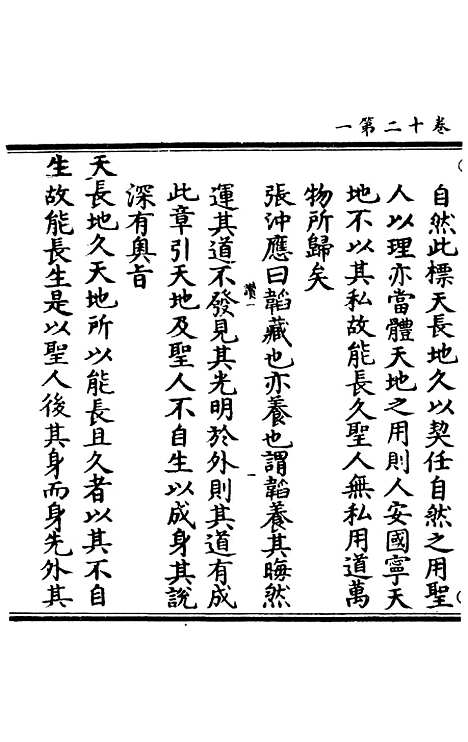 卷十二第一
自然此標天長地久以契任自然之用聖
人以理亦當體天地之用則人安國寧天
地不以其私故能長久聖人無私用道萬
物所歸矣
張沖應曰韜藏也亦養也謂韜養其晦然
讚一
一
運其道不發見其光明於外則其道有成
此章引天地及聖人不自生以成身其說
深有奧旨
天長地久天地所以能長且久者以其不自
生故能長生是以聖人後其身而身先外其